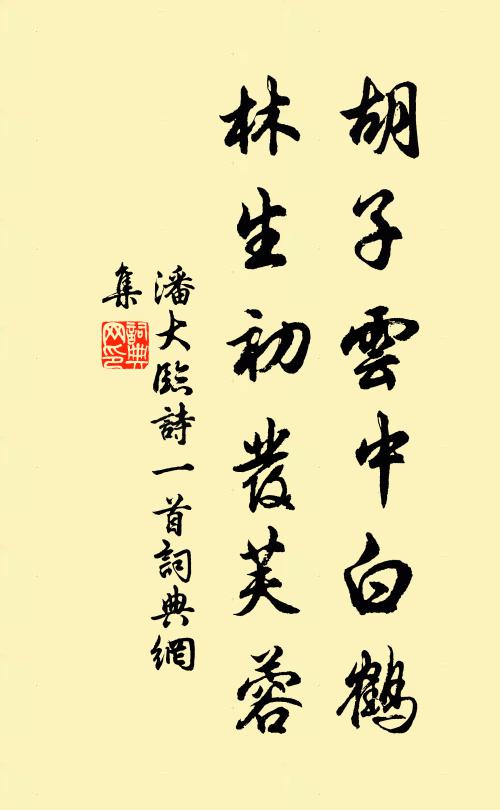 胡子雲中白鶴
林生初發芙蓉
潘大臨詩一首詞典網
集
詞典
网印